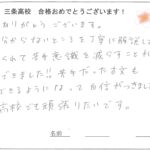 三条高校　合格おめでとうございます!
ありがとうございます。
分からないところを丁寧に解説して
くれて苦手意識を減らすことが
できました!! 苦手だった古文も
できるようになって自信がつきました。
高校でも頑張りたいです。
名前